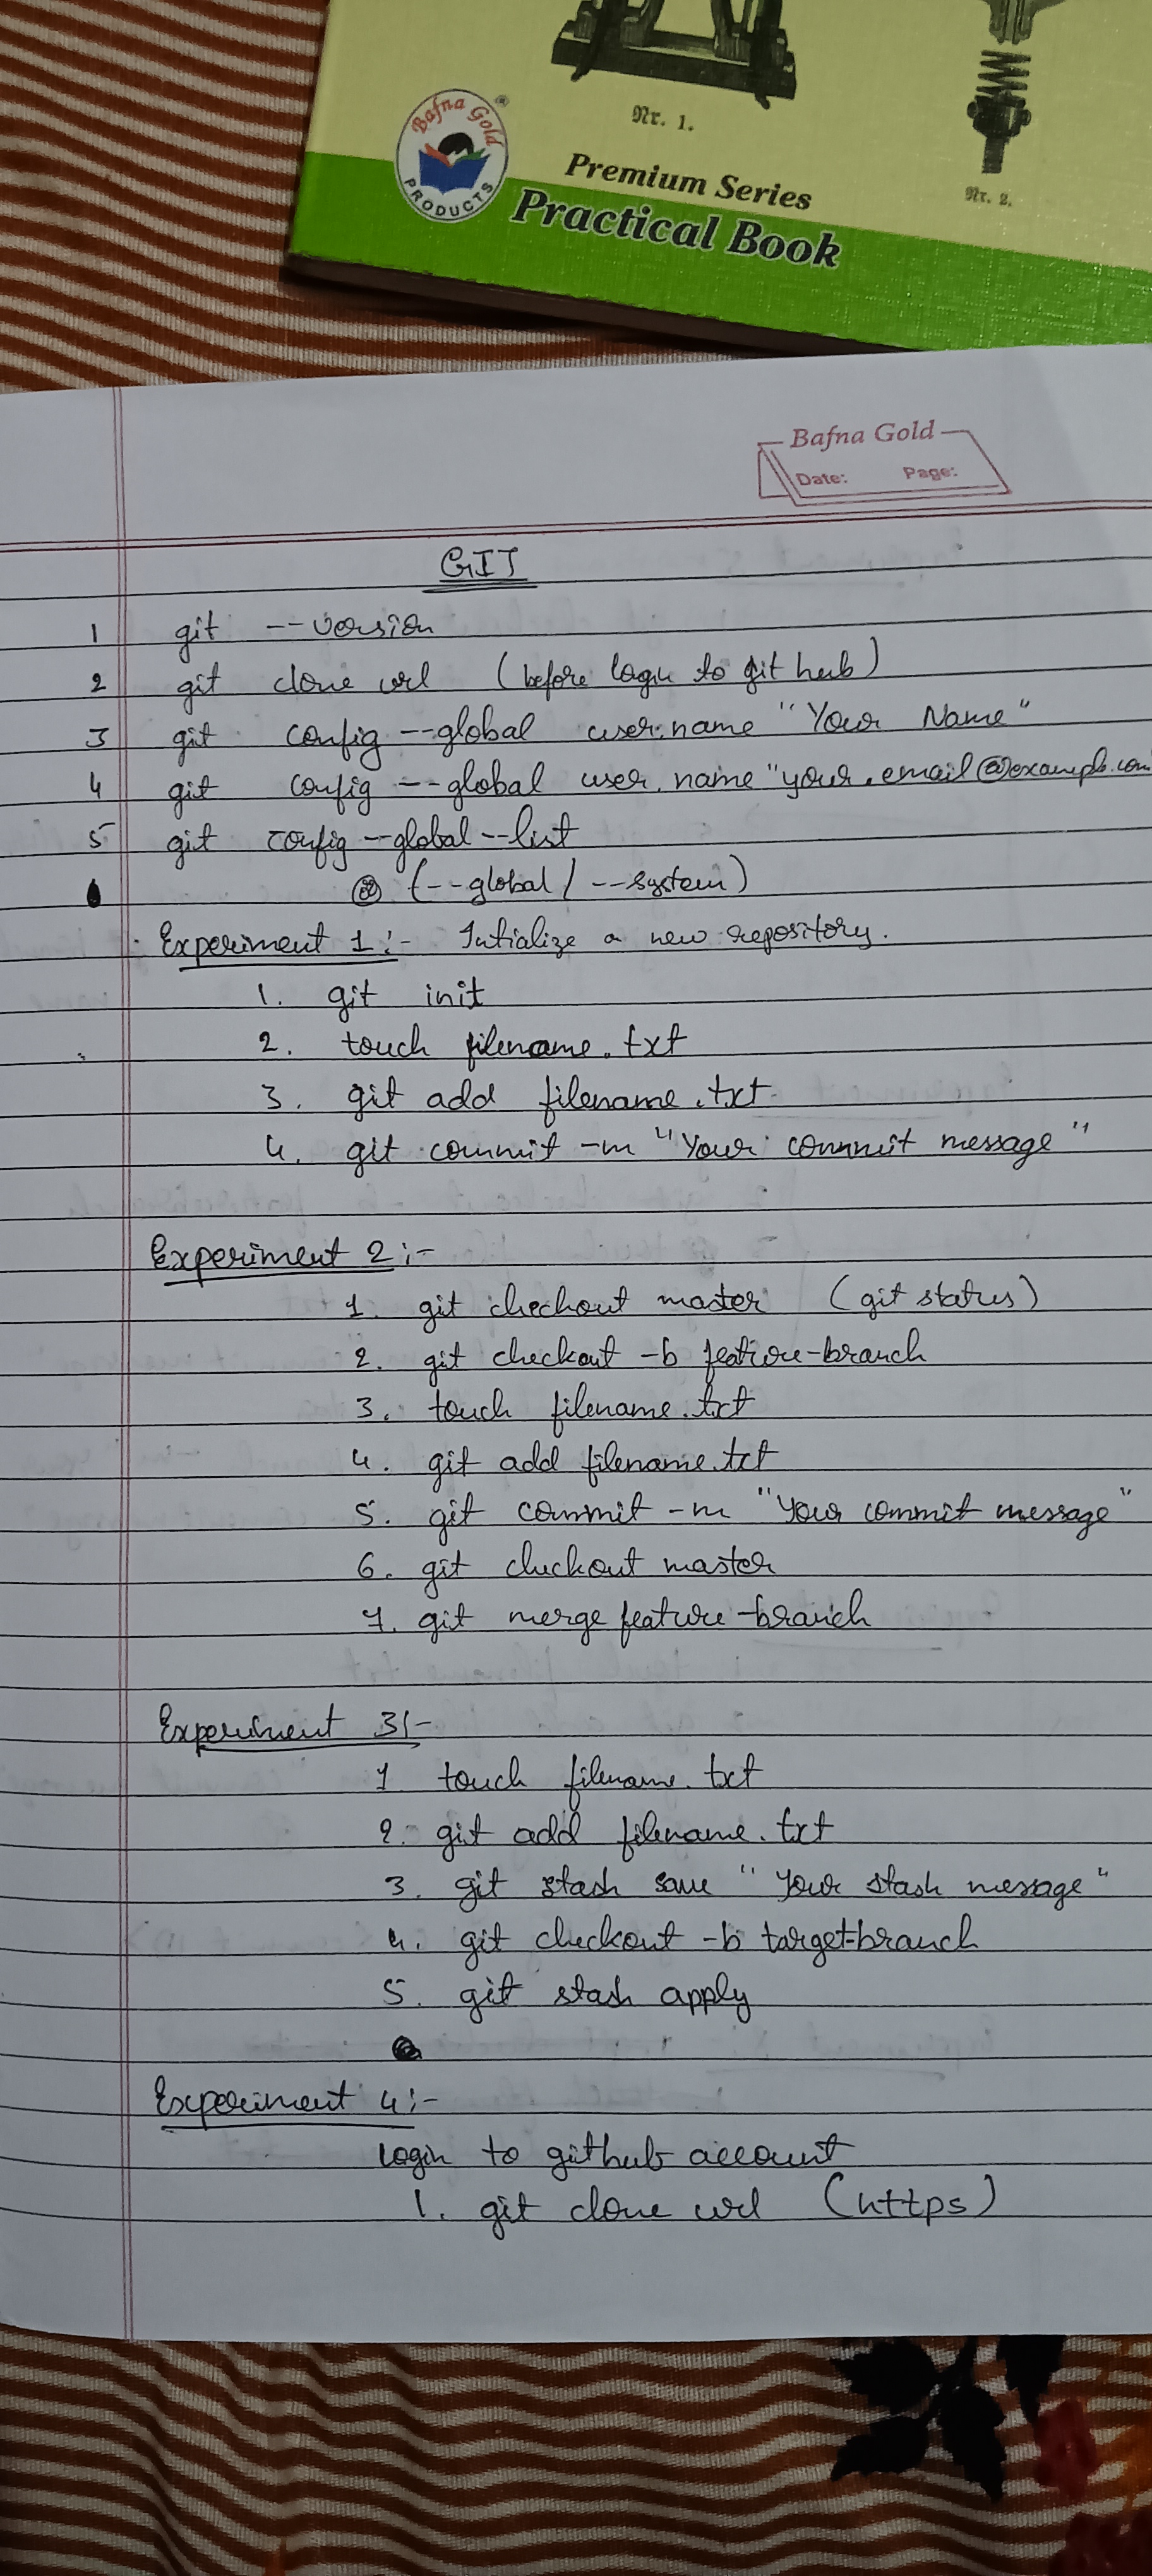 Bafna Gold
PRODUCTS
Nr. 1.
Nr. 2.
Premium Series
Practical Book
Bafna Gold
Date: Page:
GIT
1 git --version
2 git clone url (before login to git hub)
3 git config --global user.name "Your Name"
4 git config --global user.name "your.email@example.com
5 git config --global --list
(--global / --system)
Experiment 1:- Intialize a new repository.
1. git init
2. touch filename.txt
3. git add filename.txt
4. git commit -m "Your commit message"
Experiment 2:-
1. git checkout master (git status)
2. git checkout -b feature-branch
3. touch filename.txt
4. git add filename.txt
5. git commit -m "Your commit message"
6. git checkout master
7. git merge feature-branch
Experiment 3:-
1 touch filename.txt
2. git add filename.txt
3. git stash save "Your stash message"
4. git checkout -b target-branch
5. git stash apply
Experiment 4:-
Login to github account
1. git clone url (https)